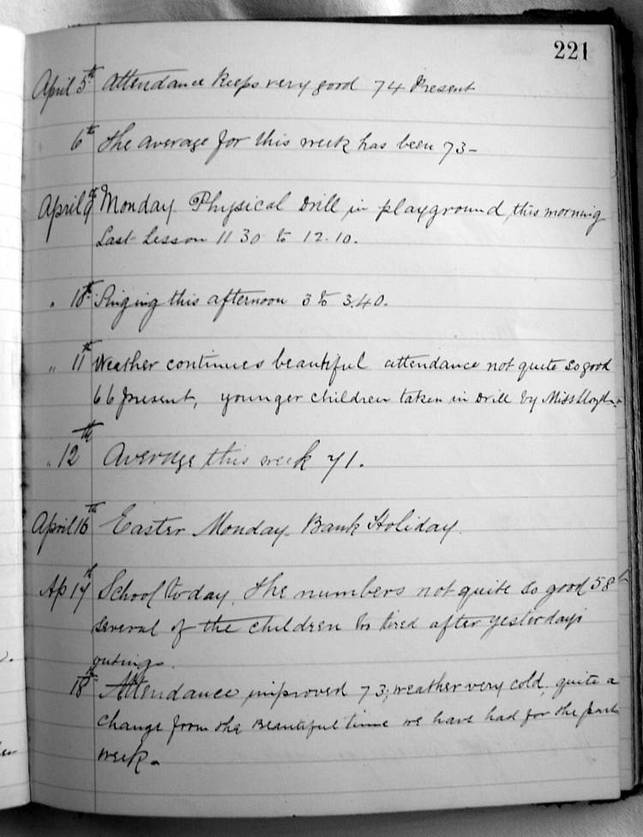 221
April 5th Attendance keeps very good 74 Present
6th The average for this week has been 73-
April 9th Monday Physical Drill in playground this morning
Last Lesson 11 30 to 12.10.
" 10th Singing this afternoon 3 to 3.40.
" 11th Weather continues beautiful attendance not quite so good
66 present, younger children taken in Drill by Miss Lloyd.
" 12th Average this week 71.
April 16th Easter Monday Bank Holiday.
Ap 17th School today. The numbers not quite so good 58
several of the children to tired after yesterdays
outing.
18th Attendance improved 73, weather very cold, quite a
change from the Beautiful time we have had for the past
week.